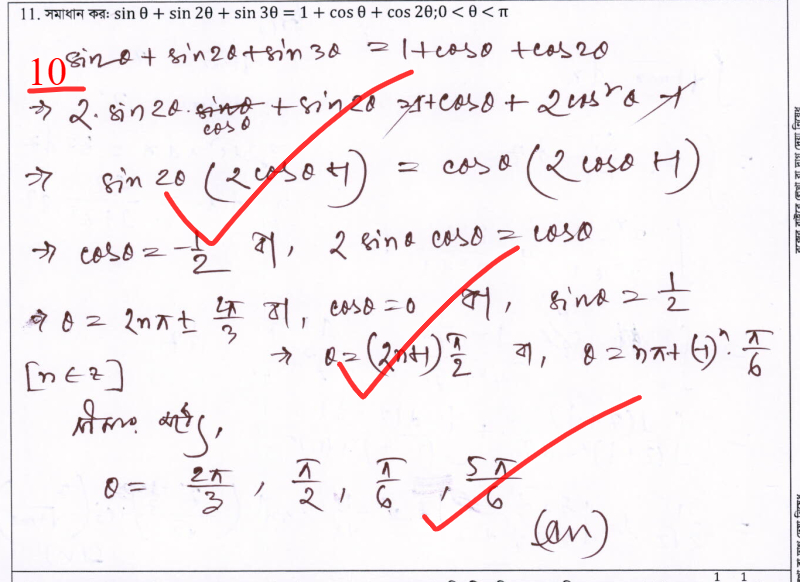 11. সমাধান কর: sin θ + sin 2θ + sin 3θ = 1 + cos θ + cos 2θ; 0 < θ < π
sinθ + sin2θ + sin3θ = 1+cosθ +cos2θ
10
⇒ 2· sin2θ· cosθ + sin2θ = 1+cosθ + 2cos²θ - 1
⇒ sin 2θ (2cosθ +1) = cosθ (2cosθ +1)
⇒ cosθ = -1/2 বা, 2 sinθ cosθ = cosθ
⇒ θ = 2nπ ± 2π/3 বা, cosθ = 0 বা, sinθ = 1/2
⇒ θ = (2n+1) π/2 বা, θ = nπ + (-1)ⁿ· π/6
[n ∈ z]
θ = 2π/3, π/2, π/6, 5π/6
(an)
1 1